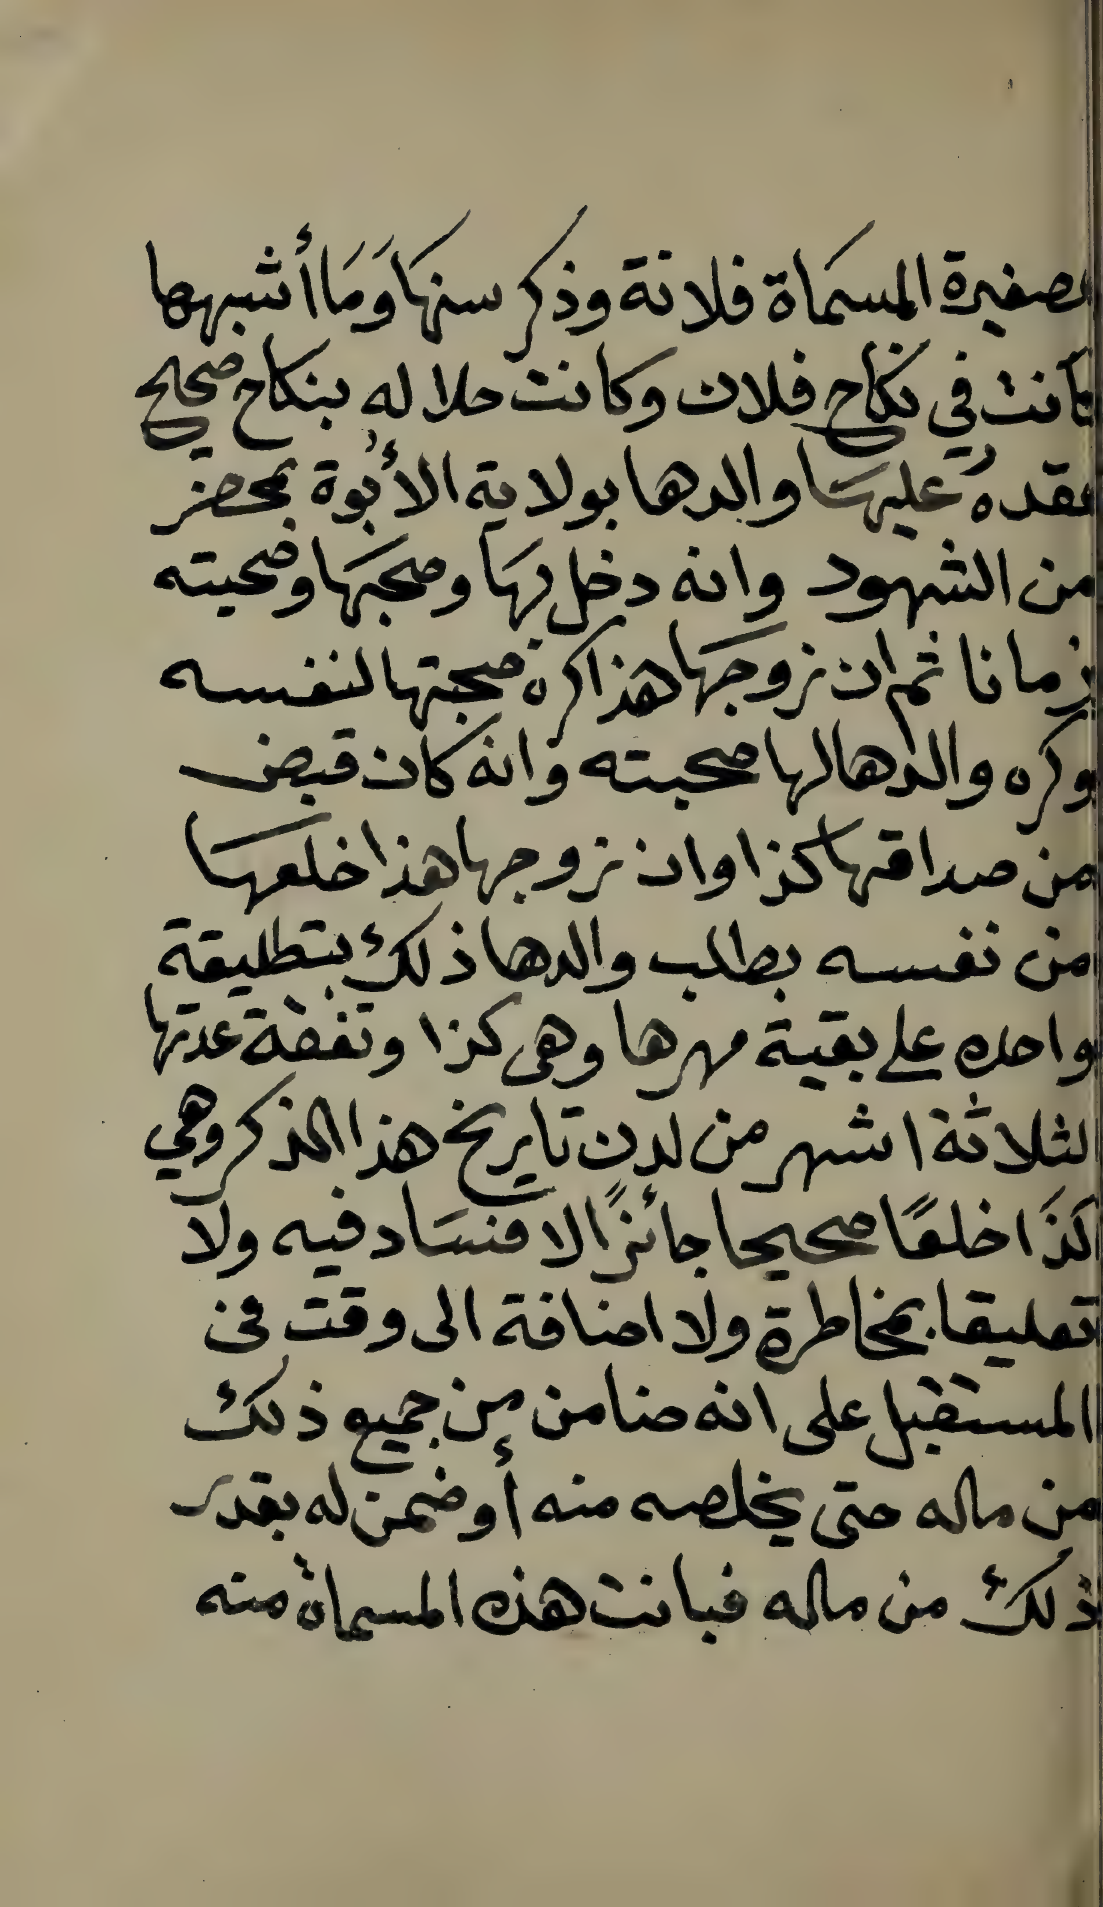 الصغيرة المسماة فلانة وذكر سنها وَمَا أشبهها
كانت في نكاح فلان وكانت حلاله بنكاح صحيح
عقده عليها والدها بولاية الأبُوة بمحضر
من الشهود وانه دخل بها وصحبها وصحبته
زمانا ثم ان زوجها هذا كره صحبتها لنفسه
وكره والدها لها صحبته وانه كان قبض
من صداقها كذا وان زوجها هذا خلعها
من نفسه بطلب والدها ذلك بتطليقة
واحده على بقية مهرها وهى كذا ونفقة عدتها
لثلاثة اشهر من لدن تاريخ هذا الذكر وهي
كذَا خلعًا صحيحا جائزًا لا فسَاد فيه ولا
تعليقا بمخاطرة ولا اضافة الى وقت فى
المستقبل على انه ضامن من جميع ذلك
من ماله حتى يخلصه منه أو ضمن له بقدر
ذلك من ماله فبانت هذه المسماة منه